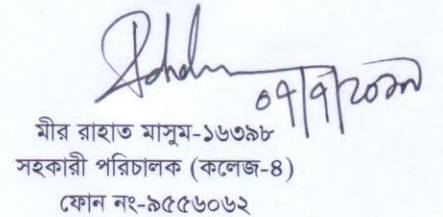 ০৭/৭/২০১৯
মীর রাহাত মাসুম-১৬৩৯৮
সহকারী পরিচালক (কলেজ-৪)
ফোন নং-৯৫৫৬০৬২